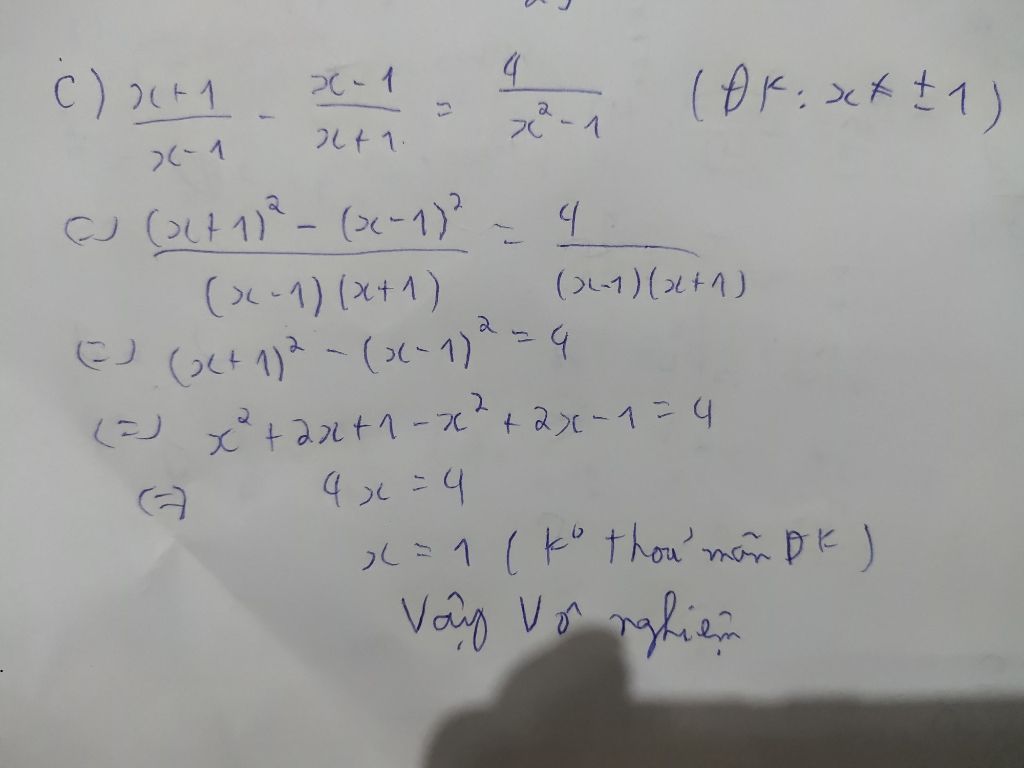 c) \frac{x+1}{x-1} - \frac{x-1}{x+1} = \frac{4}{x^2-1} (ĐK: x ≠ ±1)
(=) \frac{(x+1)^2 - (x-1)^2}{(x-1)(x+1)} = \frac{4}{(x-1)(x+1)}
(=) (x+1)^2 - (x-1)^2 = 4
(=) x^2 + 2x + 1 - x^2 + 2x - 1 = 4
(=) 4x = 4
x = 1 (ko thoả mãn ĐK)
Vậy Vô nghiệm